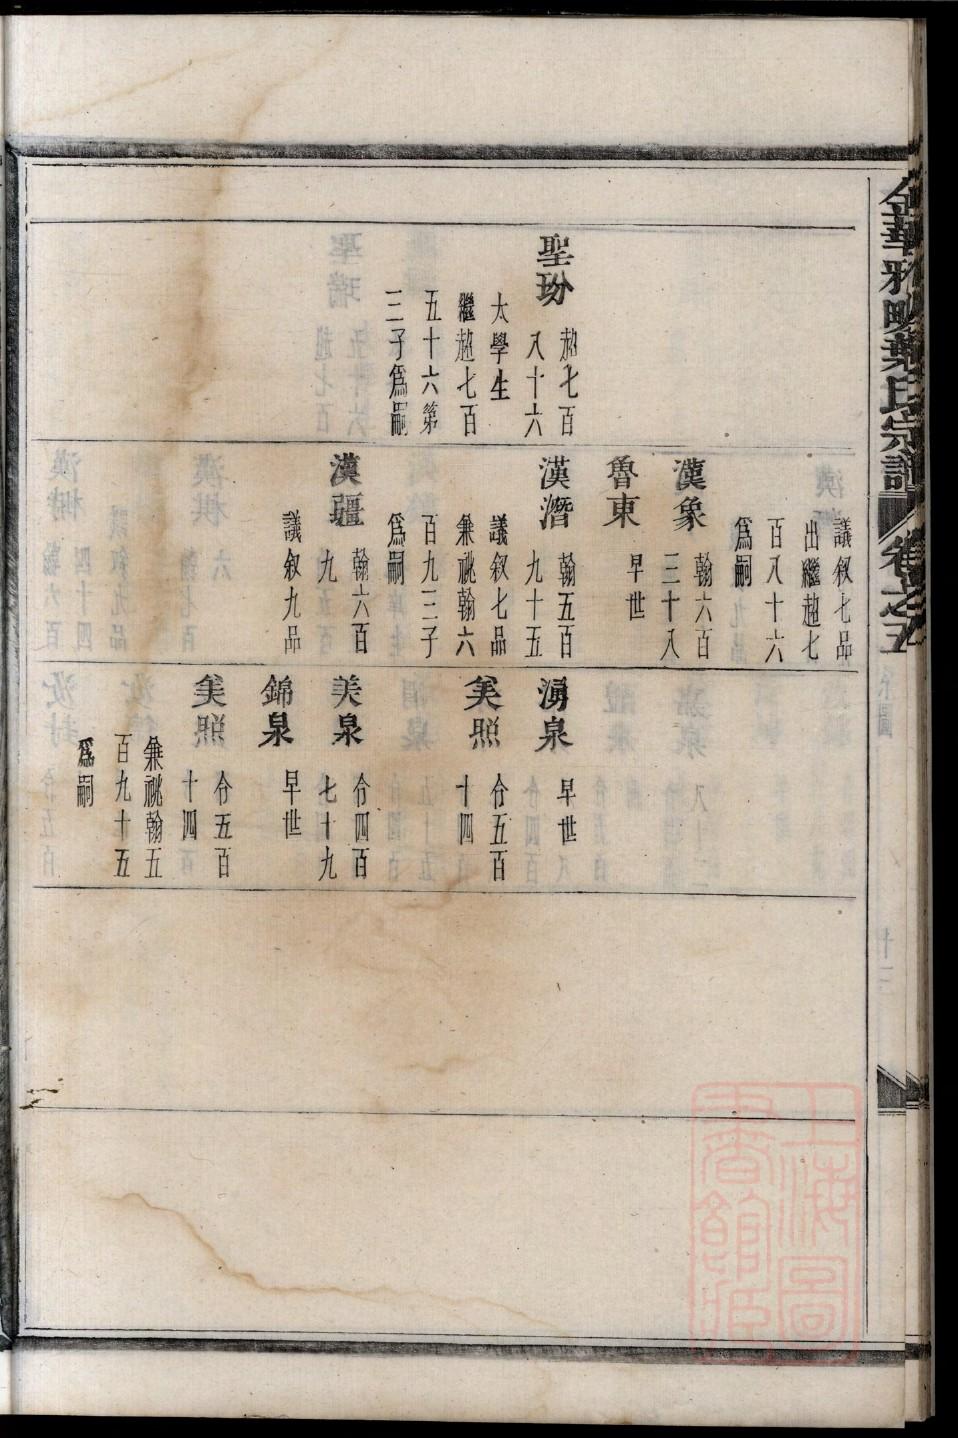 金華雅畈葉氏宗譜 卷之五
聖玢
趙七百
八十六
太學生
繼趙七百
五十六第
三子爲嗣
議叙七品
出繼趙七
百八十六
爲嗣
漢象
翰六百
三十八
魯東
早世
漢潛
翰五百
九十五
議叙七品
兼祧翰六
百九三子
爲嗣
漢疆
翰六百
九
議叙九品
湧泉
早世
美照
谷五百
十四
美泉
谷四百
七十九
錦泉
早世
美照
谷五百
十四
兼祧翰五
百九十五
爲嗣
上海圖
書館藏